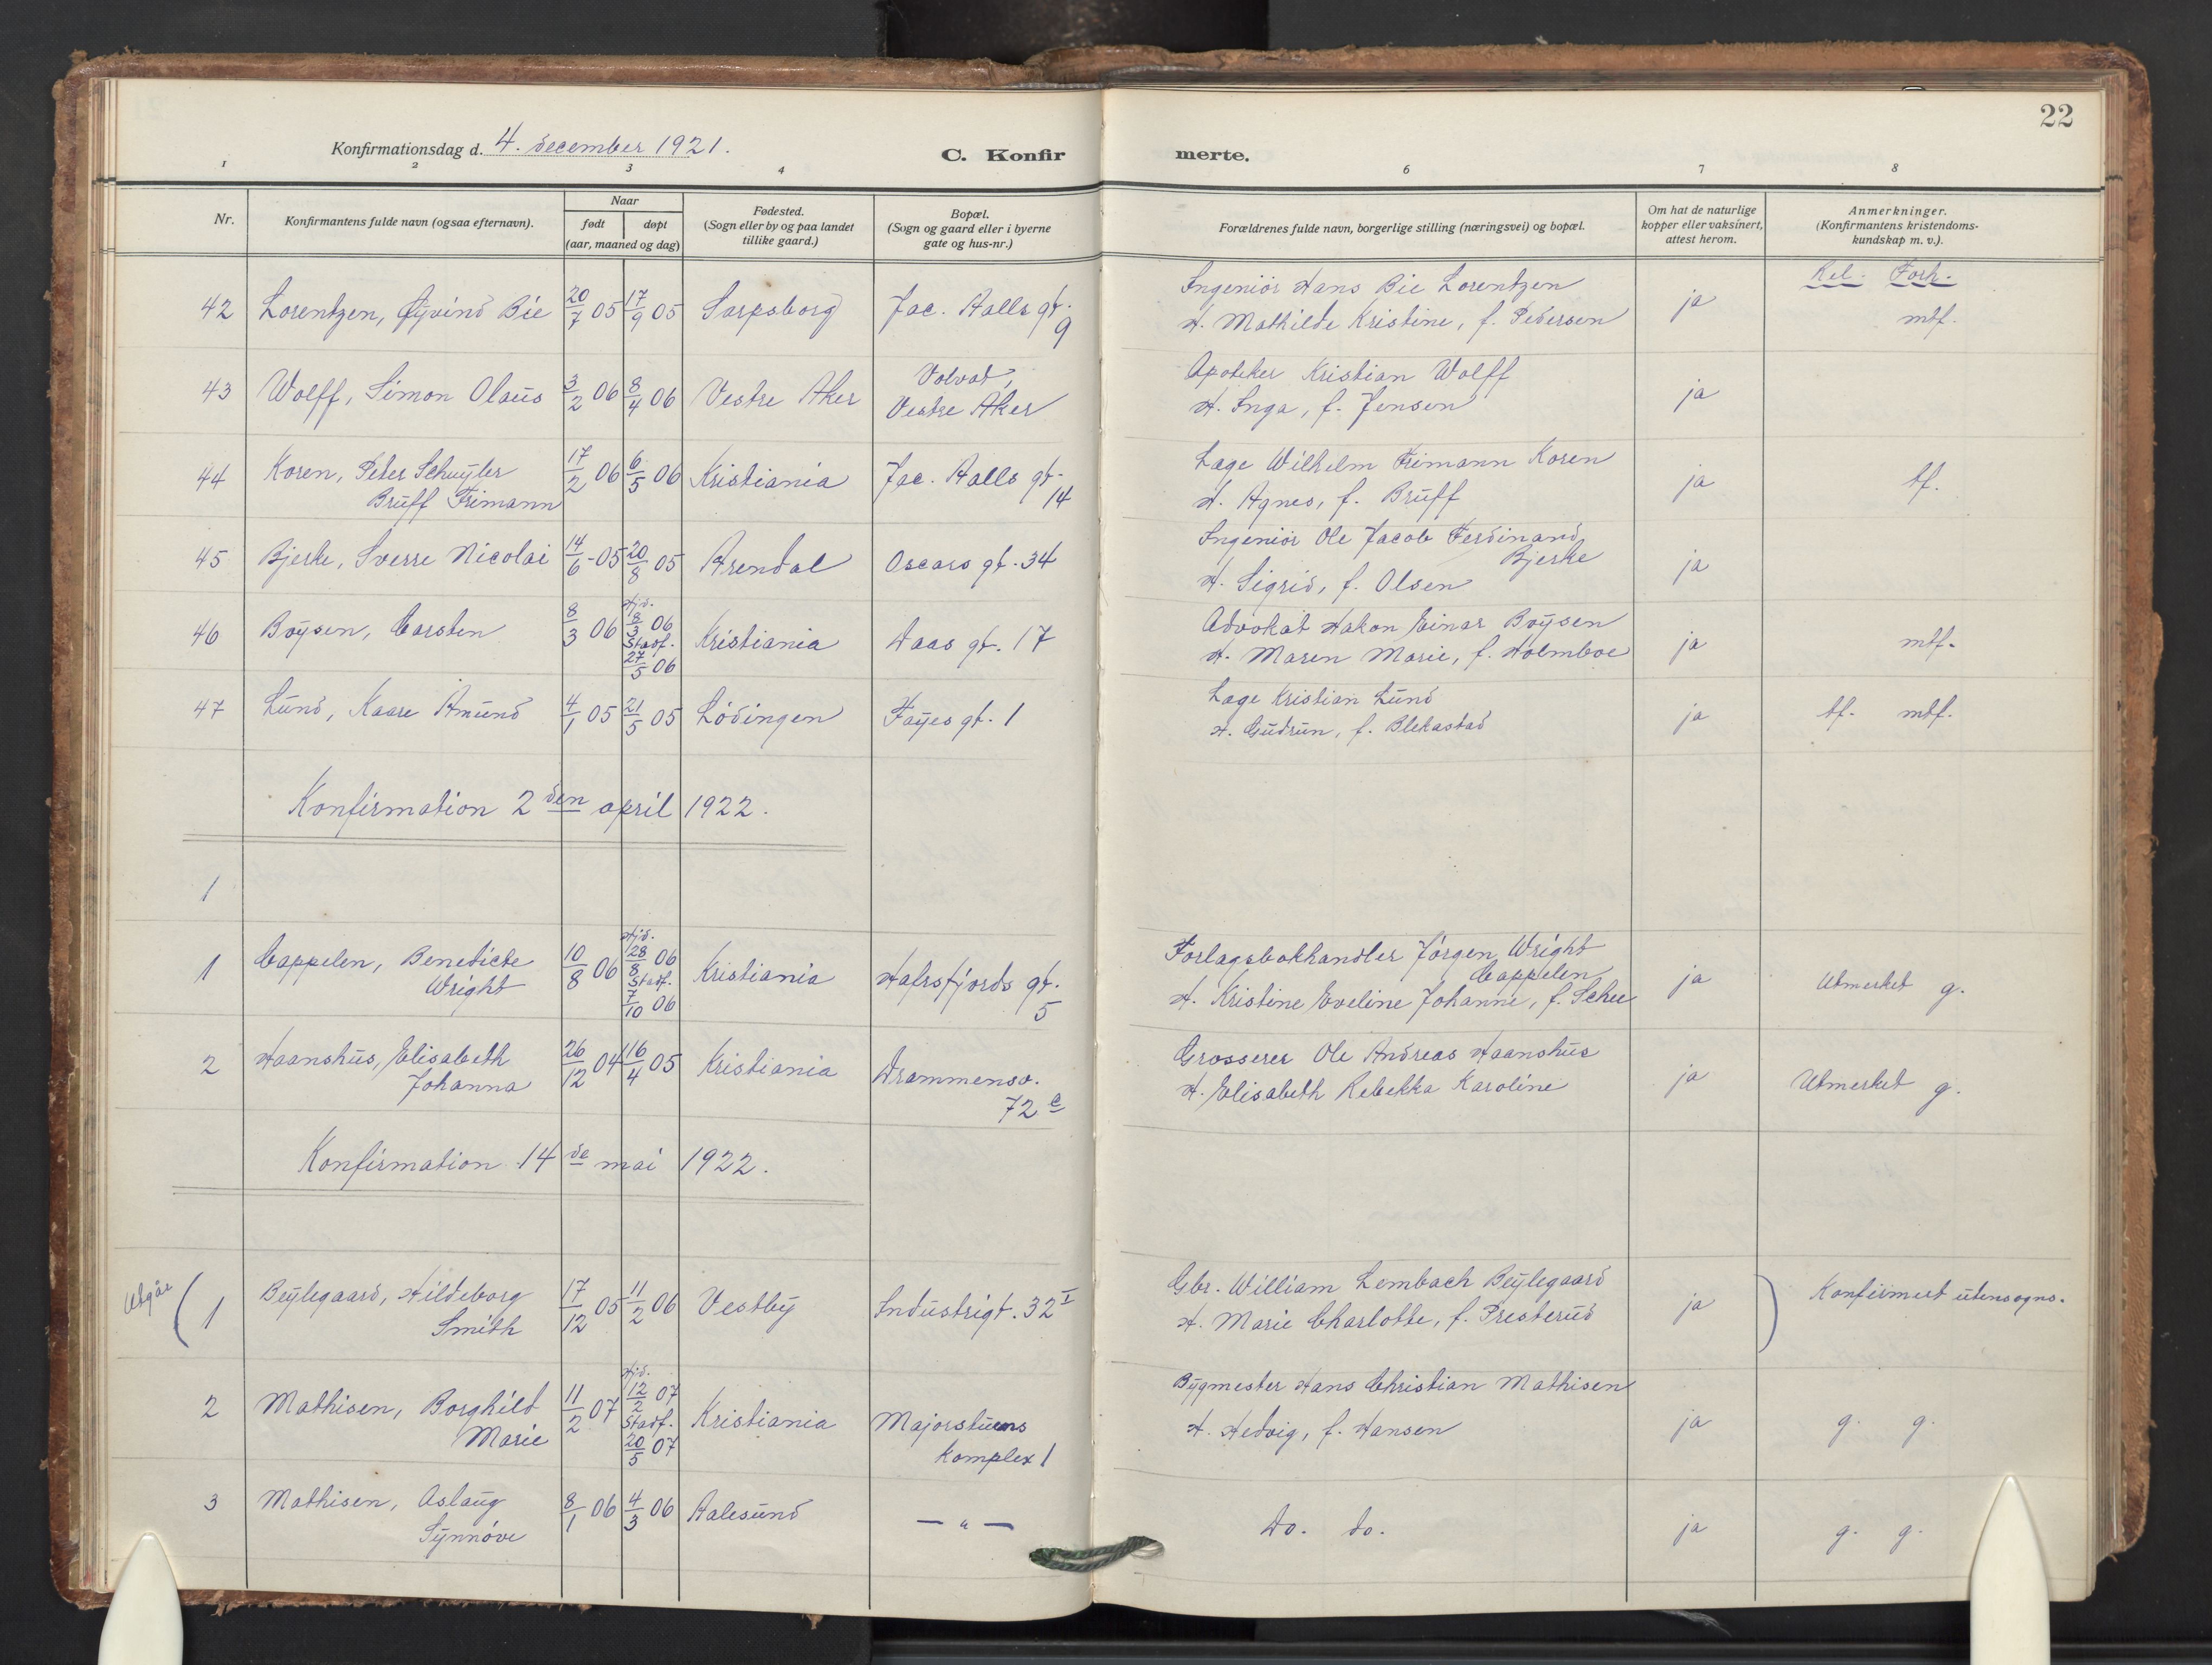 22
Konfirmationsdag d. 4. december 1921.
C. Konfirmerte.
1 2 3 4 6 7 8
Nr.
Konfirmantens fulde navn (ogsaa efternavn).
Naar
født døpt
(aar, maaned og dag)
Fødested.
(Sogn eller by og paa landet
tillike gaard.)
Bopæl.
(Sogn og gaard eller i byerne
gate og hus-nr.)
Forældrenes fulde navn, borgerlige stilling (næringsvei) og bopæl.
Om hat de naturlige
kopper eller vaksinert,
attest herom.
Anmerkninger.
(Konfirmantens kristendoms-
kundskap m. v.).
Rel. Forh.
42 Lorentzen, Øyvind Bie 20/7 05 17/9 05 Sarpsborg Jac. Aalls gt. 9
Ingeniör Hans Bie Lorentzen
H. Mathilde Kristine, f. Pedersen ja mtf.
43 Wolff, Simon Olaus 3/2 06 8/4 06 Vestre Aker Volvat,
Vestre Aker
Apoteker Kristian Wolff
H. Inga, f. Jensen ja
44 Koren, Peter Schuyler
Bruff Frimann 17/2 06 6/5 06 Kristiania Jac. Aalls gt. 14
Læge Wilhelm Frimann Koren
H. Agnes, f. Bruff ja tf.
45 Bjerke, Sverre Nicolai 14/6 - 05 20/8 05 Arendal Oscars gt. 34
Ingeniör Ole Jacob Ferdinand
Bjerke
H. Sigrid, f. Olsen ja
46 Boysen, Carsten 8/3 06 Hjd. 8/3 06
Stadf.
27/5 06 Kristiania Daas gt. 17
Advokat Hakon Einar Boysen
H. Maren Marie, f. Holmboe ja mtf.
47 Lund, Kaare Amund 4/1 05 21/5 05 Lödingen Fayes gt. 1
Læge Kristian Lund
H. Gudrun, f. Blekastad ja tf. mtf.
Konfirmation 2den april 1922.
1
1 Cappelen, Benedicte
Wright 10/8 06 Hjd. 28/8 06
Stadf.
7/10 06 Kristiania Hafrsfjords gt. 5
Forlagsbokhandler Jörgen Wright
Cappelen
H. Kristine Eveline Johanne, f. Schee ja Utmerket g.
2 Haanshus, Elisabeth
Johanna 26/12 04 16/4 05 Kristiania Drammensv.
72 c
Grosserer Ole Andreas Haanshus
H. Elisabeth Rebekka Karoline ja Utmerket g.
Konfirmation 14de mai 1922.
Utgår ( 1 Beylegaard, Hildeborg
Smith 17/12 05 11/2 06 Vestby Industrigt. 32 I
Gbr. William Lembach Beylegaard
H. Marie Charlotte, f. Presterud ja ) Konfirmert utensogns.
2 Mathisen, Borghild
Marie 11/2 07 Hjd. 12/2 07
Stadf.
20/5 07 Kristiania Majorstuens
Komplex 1
Bygmester Hans Christian Mathisen
H. Hedvig, f. Hansen ja g. g.
3 Mathisen, Aslaug
Synnöve 8/1 06 4/3 06 Aalesund — " —
Do. do. ja g. g.